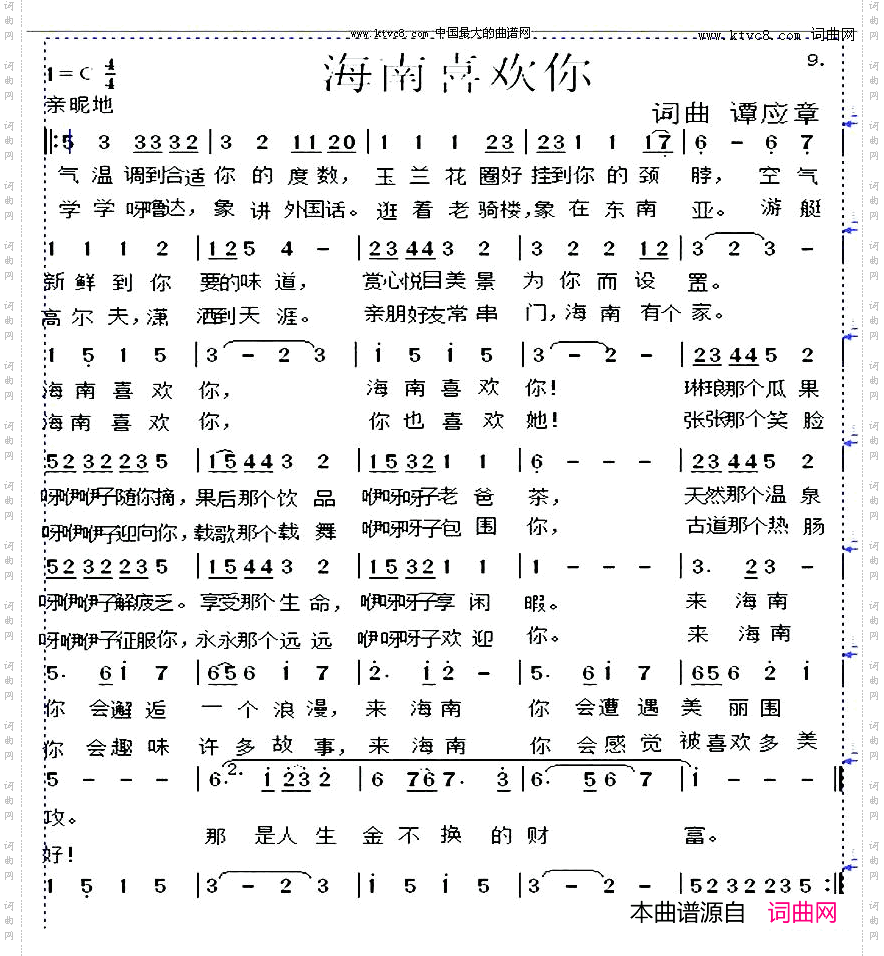 www.ktvc8.com 中国最大的曲谱网
www.ktvc8.com 词曲网
9.
1=C 4/4
海南喜欢你
亲昵地
词曲 谭应章
‖:5 3 3332 | 3 2 11 20 | 1 1 1 23 | 23 1 1 17 | 6 - 6 7
气温调到合适你的度数，玉兰花圈好挂到你的颈脖，空气
学学呀噜达，象讲外国话。逛着老骑楼，象在东南亚。游艇
1 1 1 2 | 12 5 4 - | 23 44 3 2 | 3 2 2 12 | 3 2 3 -
新鲜到你要的味道，赏心悦目美景为你而设置。
高尔夫，潇洒到天涯。亲朋好友常串门，海南有个家。
1 5 1 5 | 3 - 2 3 | i 5 i 5 | 3 - 2 - | 23 44 5 2
海南喜欢你，海南喜欢你！琳琅那个瓜果
海南喜欢你，你也喜欢她！张张那个笑脸
52 32 23 5 | 15 44 3 2 | 15 32 1 1 | 6 - - - | 23 44 5 2
呀咿咿子随你摘，果后那个饮品咿呀呀子老爸茶，天然那个温泉
呀咿咿子迎向你，载歌那个载舞咿呀呀子包围你，古道那个热肠
52 32 23 5 | 15 44 3 2 | 15 32 1 1 | 1 - - - | 3. 23 -
呀咿咿子解疲乏。享受那个生命，咿呀呀子享闲暇。来海南
呀咿咿子征服你，永永那个远远咿呀呀子欢迎你。来海南
5. 6 i 7 | 65 6 i 7 | 2. i 2 - | 5. 6 i 7 | 65 6 2 i
你会邂逅一个浪漫，来海南你会遭遇美丽围
你会趣味许多故事，来海南你会感觉被喜欢多美
5 - - - | 6. 2. i 23 2 | 6 76 7. 3 | 6. 5 6 7 | i - - - ‖
攻。
那是人生金不换的财富。
好！
1 5 1 5 | 3 - 2 3 | i 5 i 5 | 3 - 2 - | 5232235 :‖
本曲谱源自 词曲网